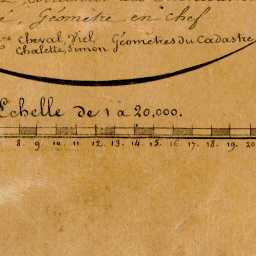 Géomètre en chef
Cheval, Viel Géomètres du Cadastre
Chalette, Simon
Echelle de 1 à 20,000.
8. 9. 10. 11. 12. 13. 14. 15. 16. 17. 18. 19. 20